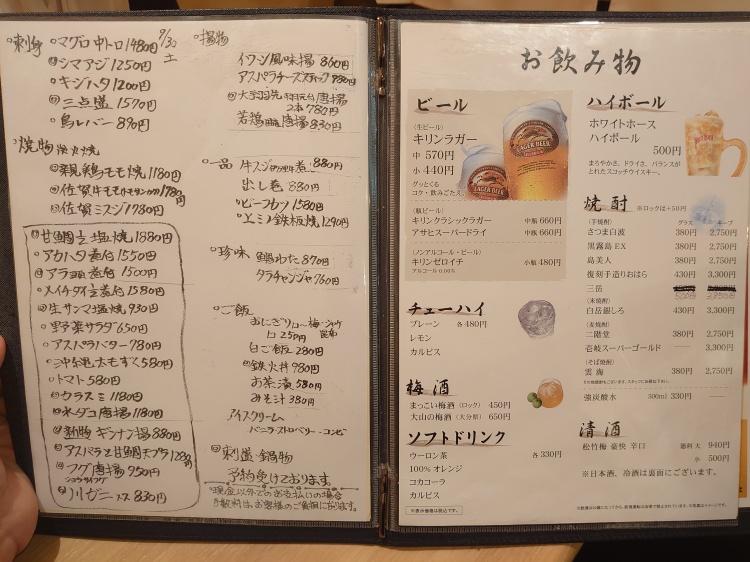 刺身
マグロ中トロ 1480円
9/30
土
シマアジ 1250円
キジハタ 1200円
三点盛 1570円
鳥レバー 890円
焼物 炭火焼
親鶏モモ焼 1180円
佐賀牛 1780円
佐賀ミスジ 1780円
甘鯛 塩焼 1880円
アカハタ煮付 1550円
アラ 煮付 1500円
メイチダイ 煮付 1580円
生サンマ塩焼 930円
野菜サラダ 650円
アスパラバター 780円
沖縄太もずく 580円
トマト 580円
カラスミ 1180円
水ダコ唐揚 1180円
新物 ギンナン揚 880円
アスパラと甘鯛天プラ 1280円
フグ唐揚 950円
ショウサイフグ
川ガニ メス 830円
揚物
イワシ風味揚 860円
アスパラチーズスティック 980円
大 唐揚
2本 780円
若鶏 唐揚 830円
一品
牛スジ 煮 880円
出し巻 880円
ビーフカツ 1580円
上ミノ鉄板焼 1290円
珍味
鯛わた 870円
タラチャンジャ 760円
ご飯
おにぎり 梅・シャケ
昆布
1コ 250円
白ご飯 280円
鉄火丼 980円
お茶漬 580円
みそ汁 380円
アイスクリーム
バニラ・ストロベリー・
刺盛・鍋物
予約受けております
現金以外でのお支払いの場合
手数料は、お客様のご負担になります。
お飲み物
ビール
(生ビール)
キリンラガー
中 570円
小 440円
グッとくる
コク・飲みごたえ。
LAGER BEER
(瓶ビール)
キリンクラシックラガー 中瓶 660円
アサヒスーパードライ 中瓶 660円
(ノンアルコール・ビール)
キリンゼロイチ 小瓶 480円
アルコール 0.00%
チューハイ
プレーン 各480円
レモン
カルピス
梅酒
まっこい梅酒(ロック) 450円
大山の梅酒(大分県) 650円
ソフトドリンク
ウーロン茶 各330円
100% オレンジ
コカコーラ
カルピス
※表示価格は税込です。
ハイボール
ホワイトホース
ハイボール
500円
まろやかさ、ドライさ、バランスが
とれたスコッチウイスキー。
焼酎 ※ロックは+50円
(芋焼酎) グラス キープ
さつま白波 380円 2,750円
黒霧島 EX 380円 2,750円
島美人 380円 2,750円
復刻手造りおはら 430円 3,300円
三岳
(米焼酎)
白岳銀しろ 430円 3,300円
(麦焼酎)
二階堂 380円 2,750円
壱岐スーパーゴールド — 3,300円
(そば焼酎)
雲海 380円 2,750円
強炭酸水 500ml 330円 —
清酒
松竹梅 豪快 辛口 徳利 大 940円
小 500円
※日本酒、冷酒は裏面にございます。